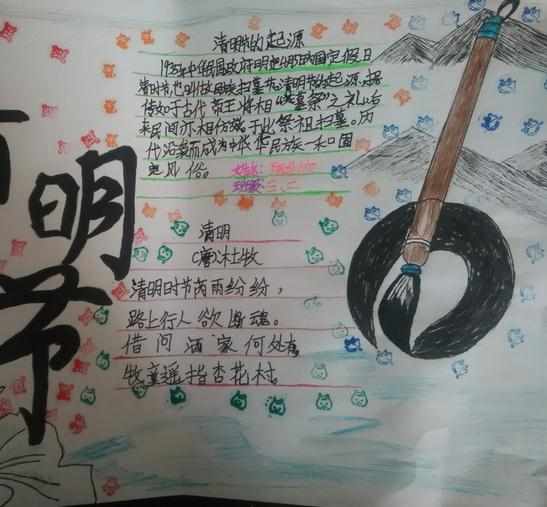 清明节的起源
1935年中华民国政府明定4月5日为国定假日
清明节,也叫做民族扫墓节,清明节的起源,据
传始于古代帝王将相“墓祭”之礼,后
来民间亦相仿效于此祭祖扫墓。历
代沿袭而成为中华民族一种固
定风俗。
班级:三、二
清明
(唐)杜牧
清明时节雨纷纷,
路上行人欲断魂。
借问酒家何处有
牧童遥指杏花村
明
节